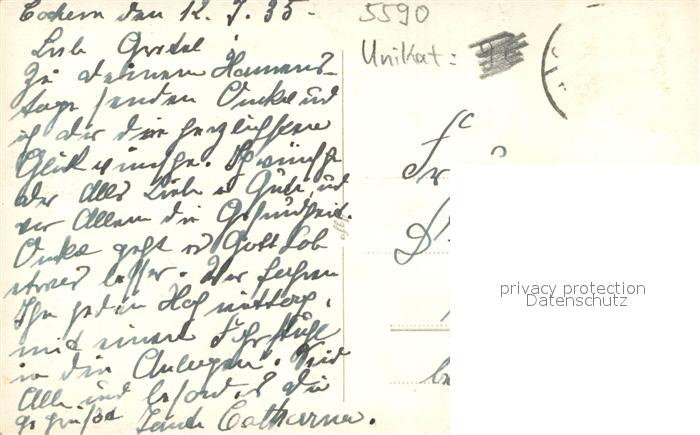 Cochem den 12. 7. 35.
Liebe Gretel!
Zu deinem Namens-
tage senden Onkel und
ich dir die herzlichsten
Glückwünsche. Ich wünsche
dir Alles Liebe u Gute, und
vor Allem die Gesundheit.
Onkel geht es Gott Lob
etwas besser. Wir fahren
Ihn jeden Nachmittag,
mit einem Fahrstuhl
in die Anlagen. Seid
Alle und besonders du
gegrüßt Tante Catharina.
5590
Unikat:
Fr
privacy protection
Datenschutz